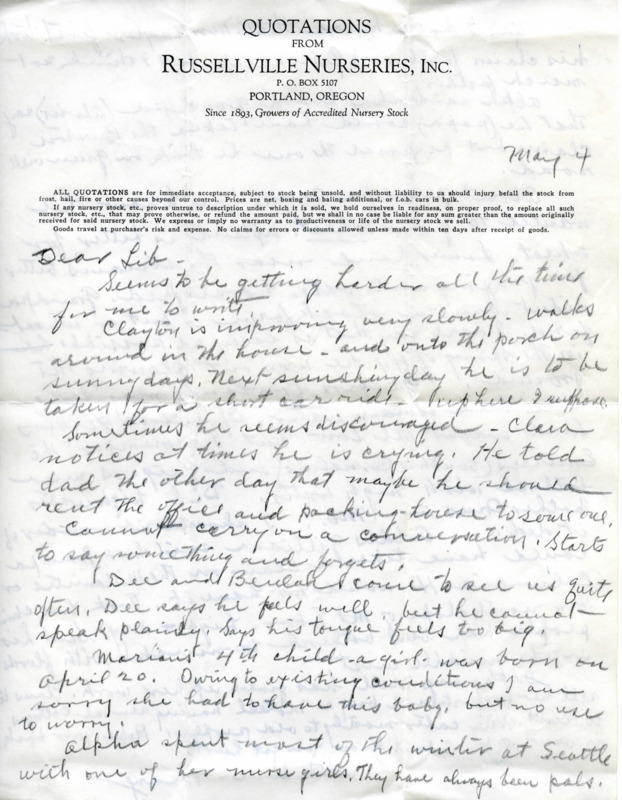 QUOTATIONS
FROM
RUSSELLVILLE NURSERIES, INC.
P. O. BOX 5107
PORTLAND, OREGON
Since 1893, Growers of Accredited Nursery Stock
May 4
ALL QUOTATIONS are for immediate acceptance, subject to stock being unsold, and without liability to us should injury befall the stock from
frost, hail, fire or other causes beyond our control. Prices are net, boxing and baling additional, or f.o.b. cars in bulk.
If any nursery stock, etc., proves untrue to description under which it is sold, we hold ourselves in readiness, on proper proof, to replace all such
nursery stock, etc., that may prove otherwise, or refund the amount paid, but we shall in no case be liable for any sum greater than the amount originally
received for said nursery stock. We express or imply no warranty as to productiveness or life of the nursery stock we sell.
Goods travel at purchaser's risk and expense. No claims for errors or discounts allowed unless made within ten days after receipt of goods.
Dear Lib -
Seems to be getting harder all the time
for me to write.
Clayton is improving very slowly - walks
around in the house - and onto the porch on
sunny days. Next sunshiny day he is to be
taken for a short car ride - up here I suppose.
Sometimes he seems discouraged - Clara
notices at times he is crying. He told
dad the other day that maybe he should
rent the office and packing-house to some one.
Cannot carry on a conversation. Starts
to say something and forgets.
Dee and Beulah come to see us quite
often. Dee says he feels well, but he cannot
speak plainly. Says his tongue feels too big.
Marian's 4th child - a girl - was born on
April 20. Owing to existing conditions I am
sorry she had to have this baby, but no use
to worry.
Alpha spent most of the winter at Seattle
with one of her nurse girls. They have always been pals.